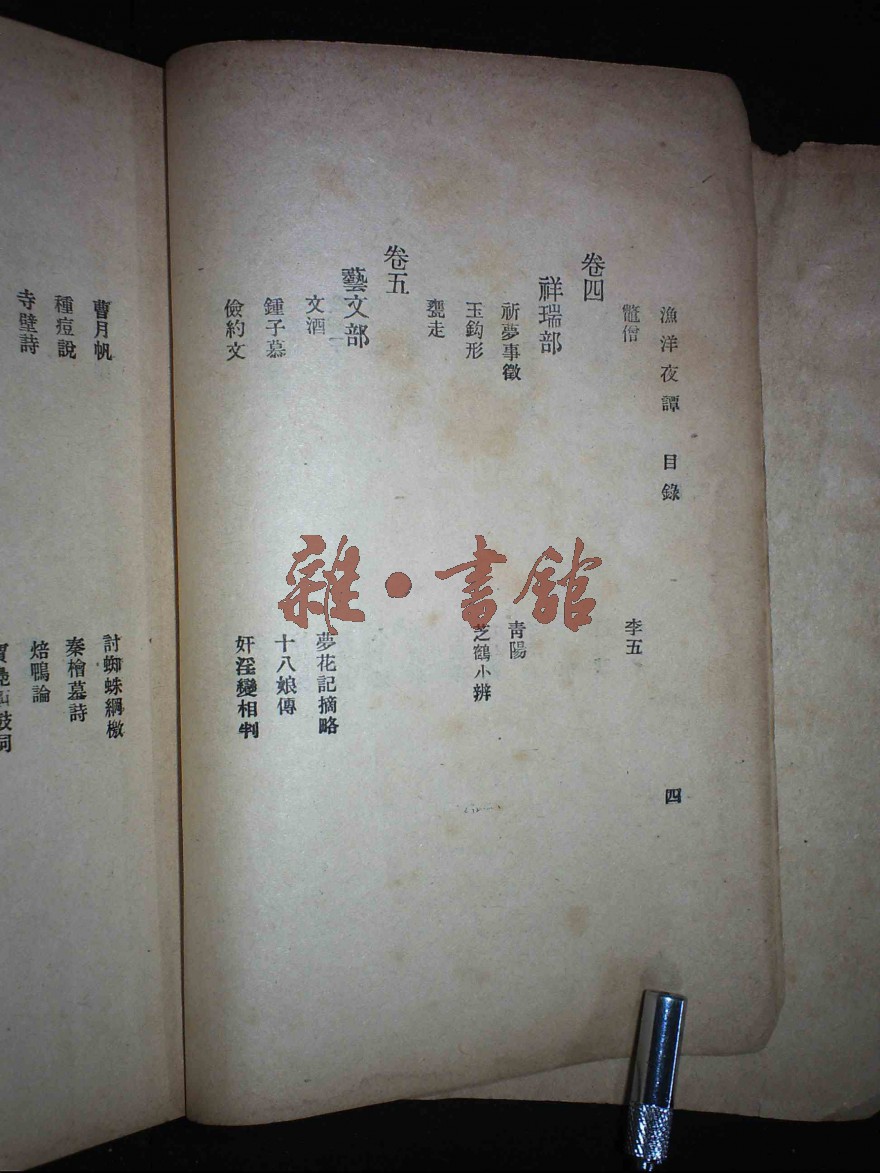 漁洋夜譚 目錄 四
鼈僧 李五
卷四
祥瑞部
祈夢事徵 青陽
玉鈎形 芝鶴小辨
甕走
卷五
藝文部
文酒 夢花記摘略
鍾子慕 十八娘傳
儉約文 奸淫變相判
曹月帆 討蜘蛛網檄
種痘說 秦檜墓詩
寺壁詩 焙鴨論
鼓詞
雜·書館